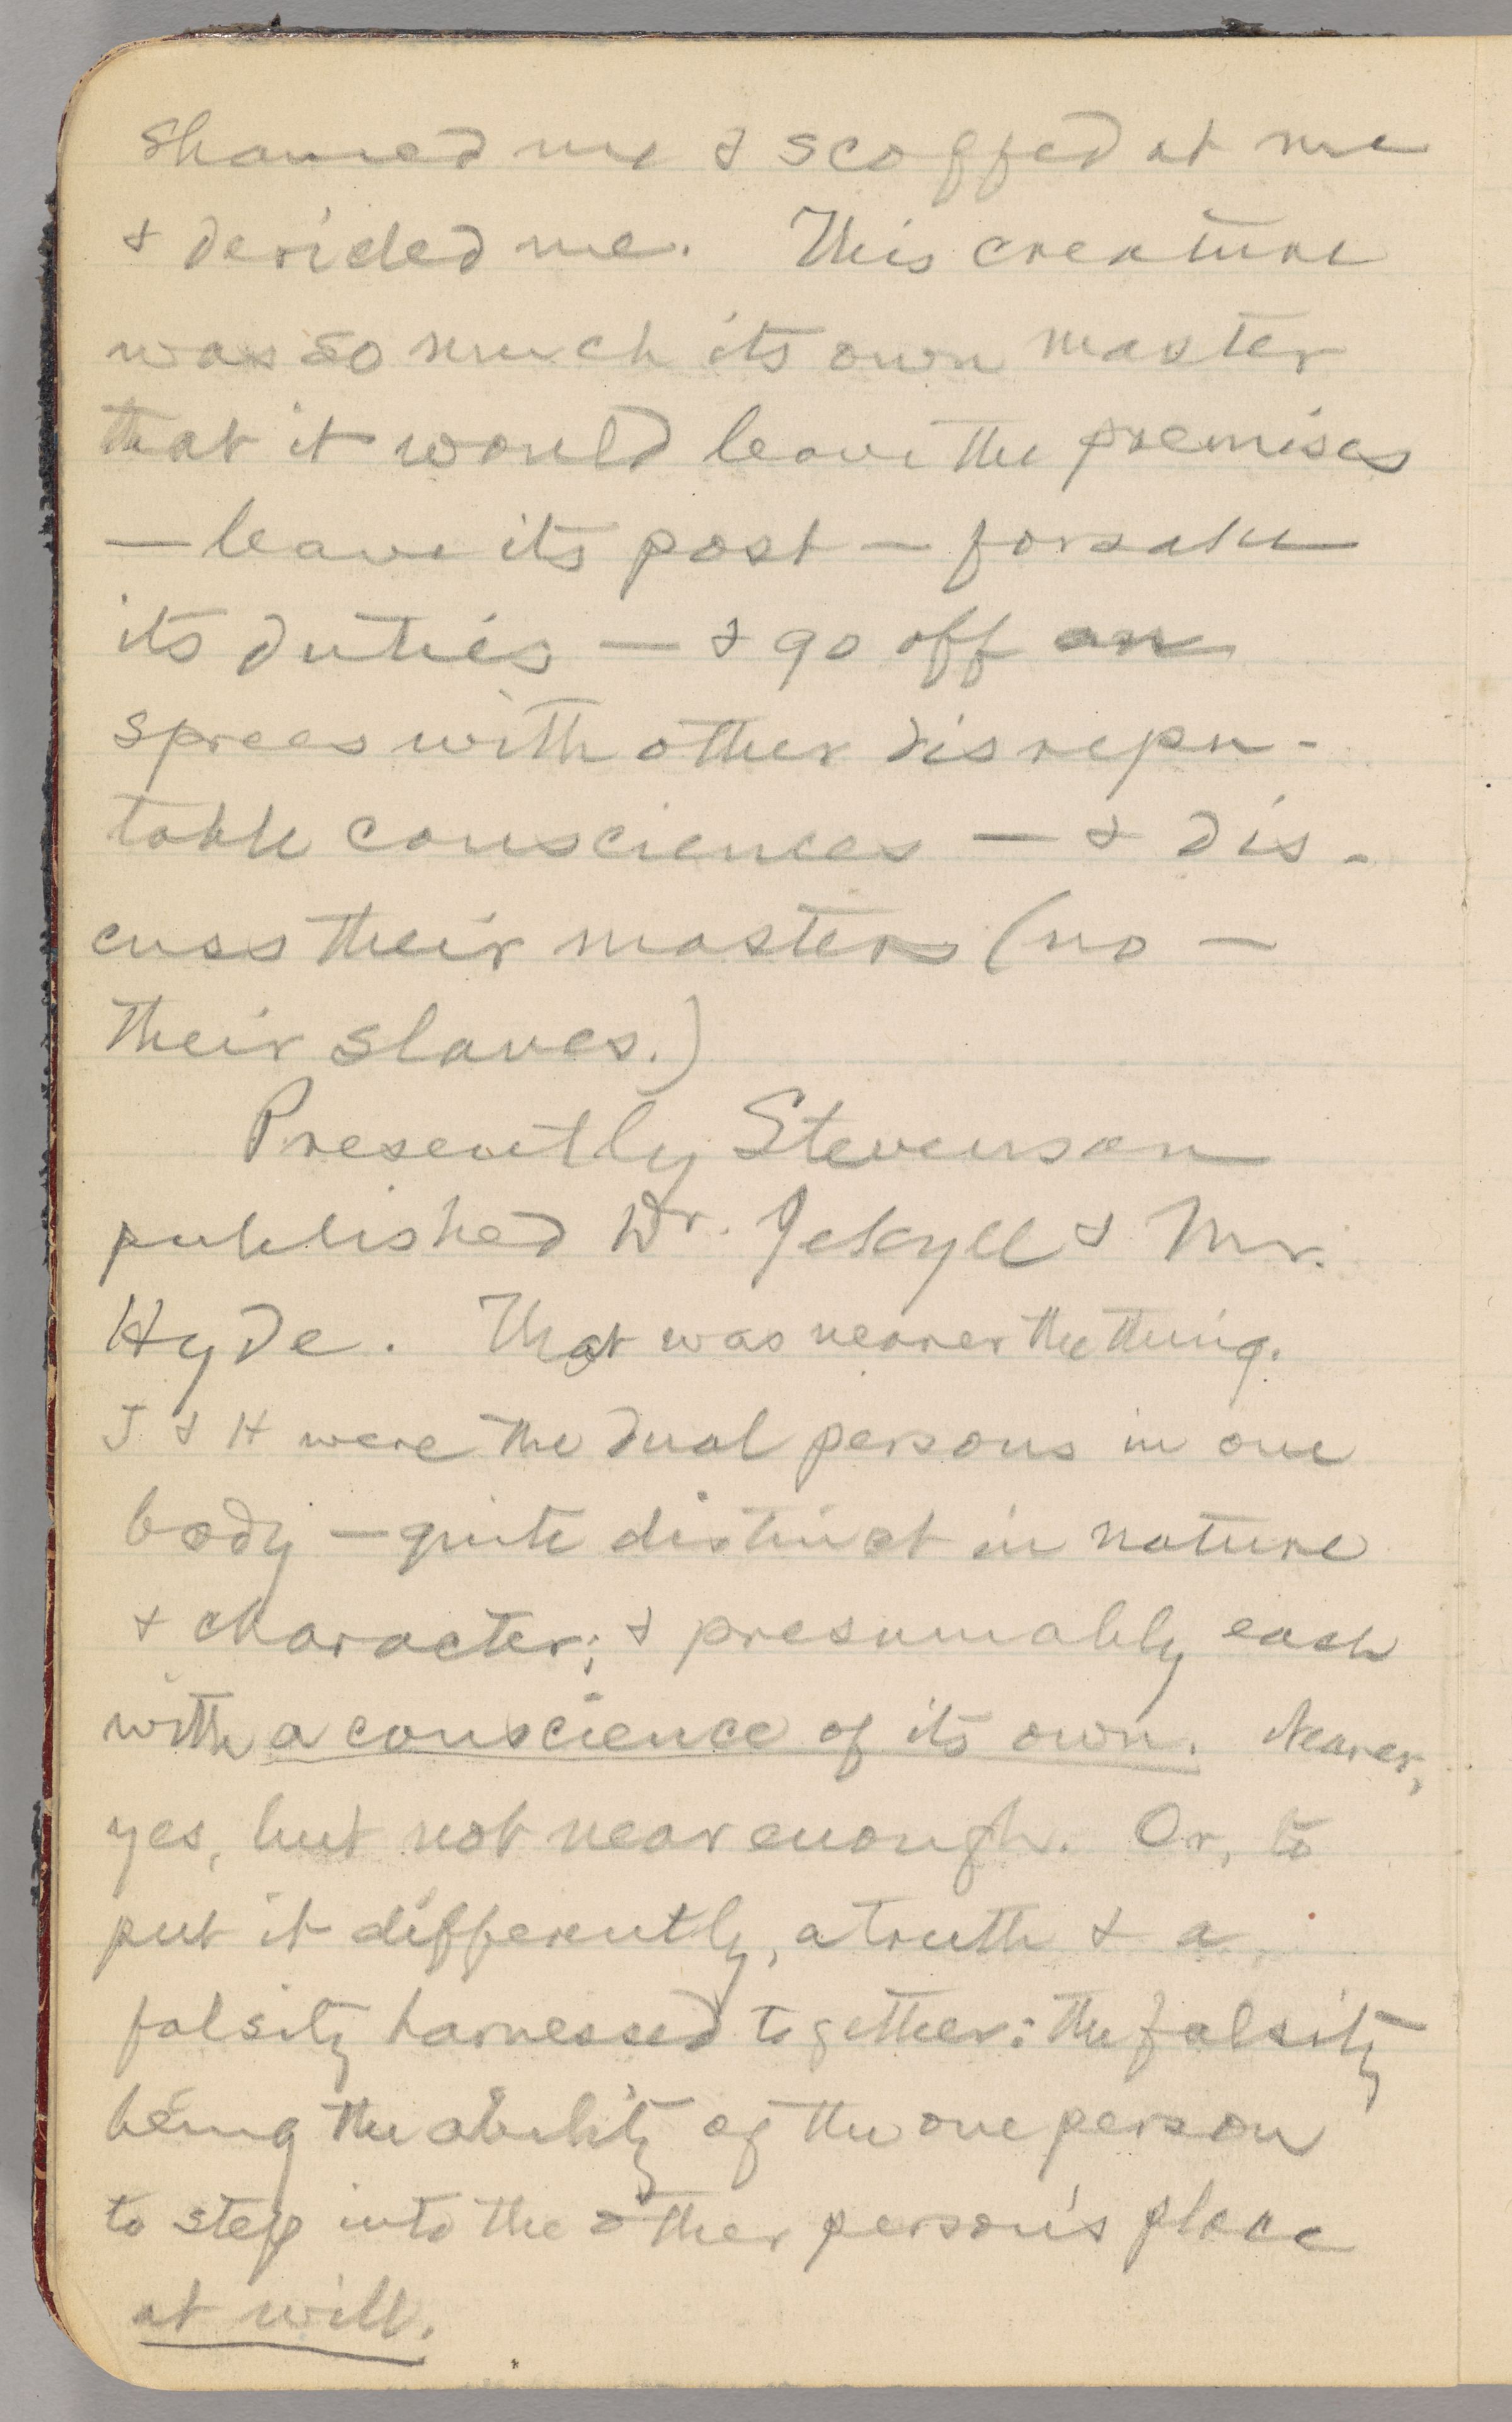 shamed me & scoffed at me
& derided me. This creature
was so much its own master
that it would leave the premises
— leave its post — forsake
its duties — & go off on
sprees with other disrepu-
table consciences — & dis-
cuss their masters (no —
their slaves.)
Presently Stevenson
published Dr. Jekyll & Mr.
Hyde. That was nearer the thing.
J. & H were the dual persons in one
body — quite distinct in nature
& character; & presumably each
with a conscience of its own. Nearer,
yes, but not near enough. Or, to
put it differently, a truth & a
falsity harnessed together: the falsity
being the ability of the one person
to step into the other person's place
at will.